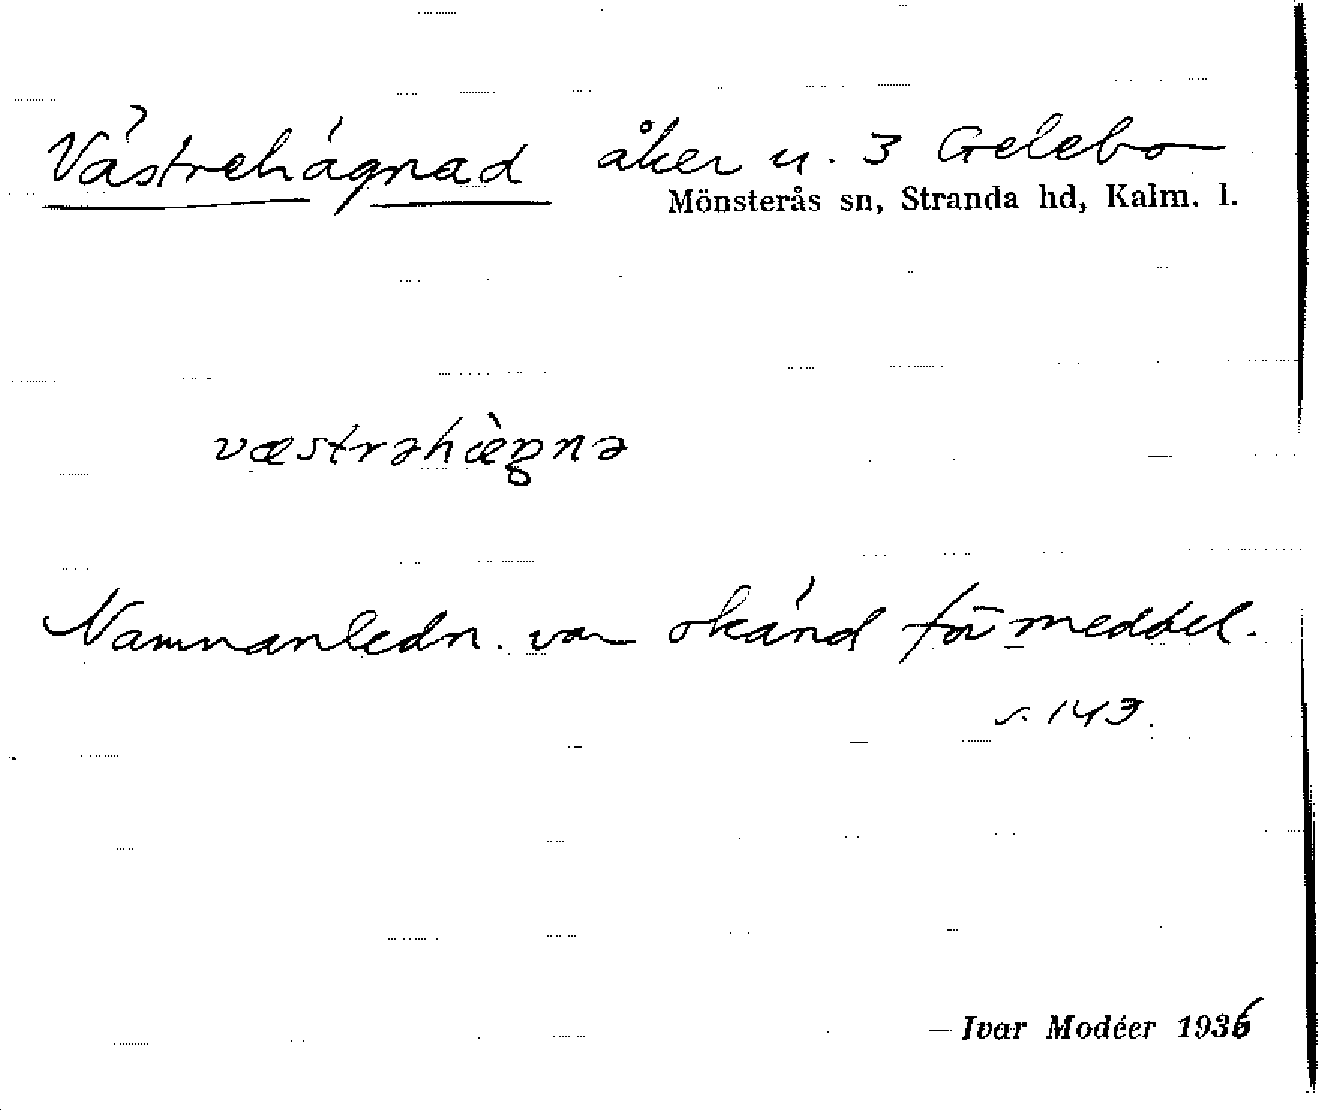 Västrehägnad åker u. 3 Gelebo
Mönsterås sn, Stranda hd, Kalm. l.
væstrəhὰgnə
Namnanledn. var okänd för meddel.
s. 143.
Ivar Modéer 1936